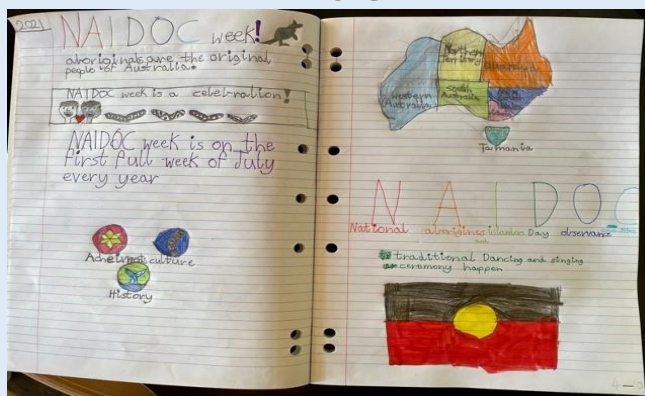 2021
NAIDOC week!
aboriginals are the original
people of Australia.
NAIDOC week is a celebration!
NAIDOC week is on the
first full week of July
every year
culture
History
Northern
Territory
Western
Australia
South
Australia
Tasmania
NAIDOC
National aborigines islander Day observance
traditional Dancing and singing
ceremony happen